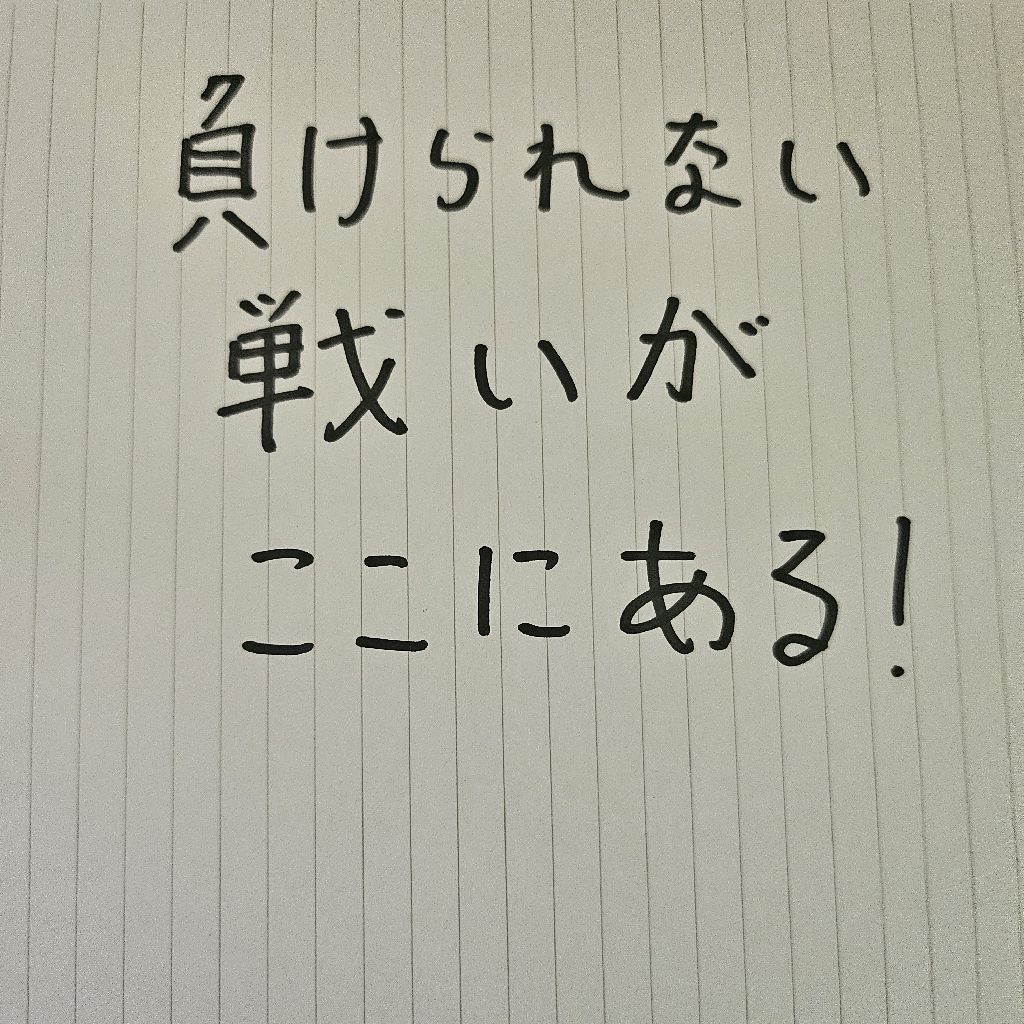 負けられない
戦いが
ここにある!